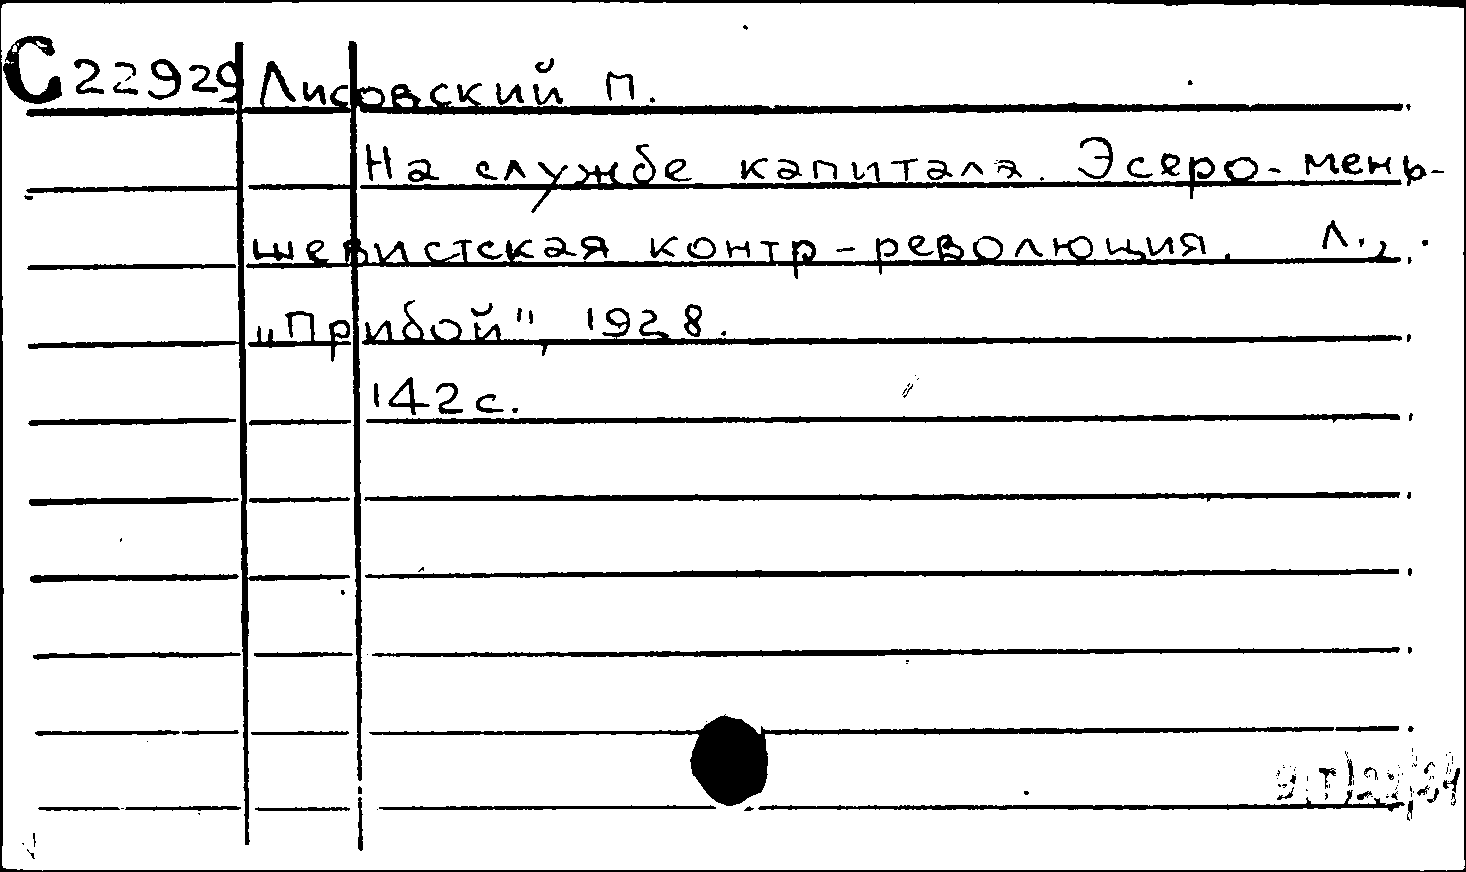 С 22929 Лисовский П.
На службе капитала. Эсеро-мень-
шевистская контр-революция. Л.,
„Прибой", 1928.
142 с.